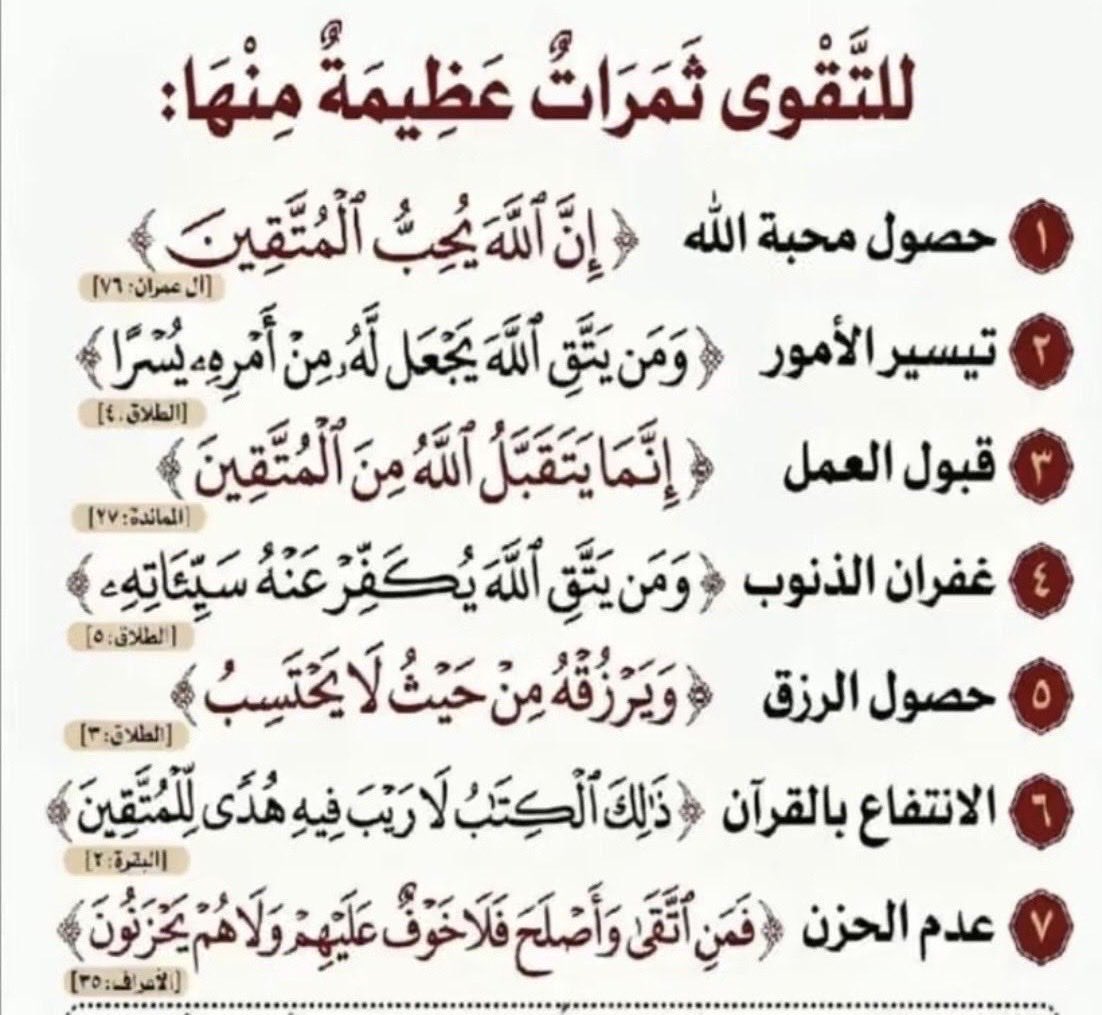 للتَّقْوى ثَمَرَاتٌ عَظِيمَةٌ مِنْهَا:
١ حصول محبة الله ﴿ إِنَّ ٱللَّهَ يُحِبُّ ٱلْمُتَّقِينَ ﴾
[آل عمران: ٧٦]
٢ تيسير الأمور ﴿ وَمَن يَتَّقِ ٱللَّهَ يَجْعَل لَّهُۥ مِنْ أَمْرِهِۦ يُسْرًا ﴾
[الطلاق: ٤]
٣ قبول العمل ﴿ إِنَّمَا يَتَقَبَّلُ ٱللَّهُ مِنَ ٱلْمُتَّقِينَ ﴾
[المائدة: ٢٧]
٤ غفران الذنوب ﴿ وَمَن يَتَّقِ ٱللَّهَ يُكَفِّرْ عَنْهُ سَيِّـَٔاتِهِۦ ﴾
[الطلاق: ٥]
٥ حصول الرزق ﴿ وَيَرْزُقْهُ مِنْ حَيْثُ لَا يَحْتَسِبُ ﴾
[الطلاق: ٣]
٦ الانتفاع بالقرآن ﴿ ذَٰلِكَ ٱلْكِتَٰبُ لَا رَيْبَ فِيهِ هُدًى لِّلْمُتَّقِينَ ﴾
[البقرة: ٢]
٧ عدم الحزن ﴿ فَمَنِ ٱتَّقَىٰ وَأَصْلَحَ فَلَا خَوْفٌ عَلَيْهِمْ وَلَا هُمْ يَحْزَنُونَ ﴾
[الأعراف: ٣٥]